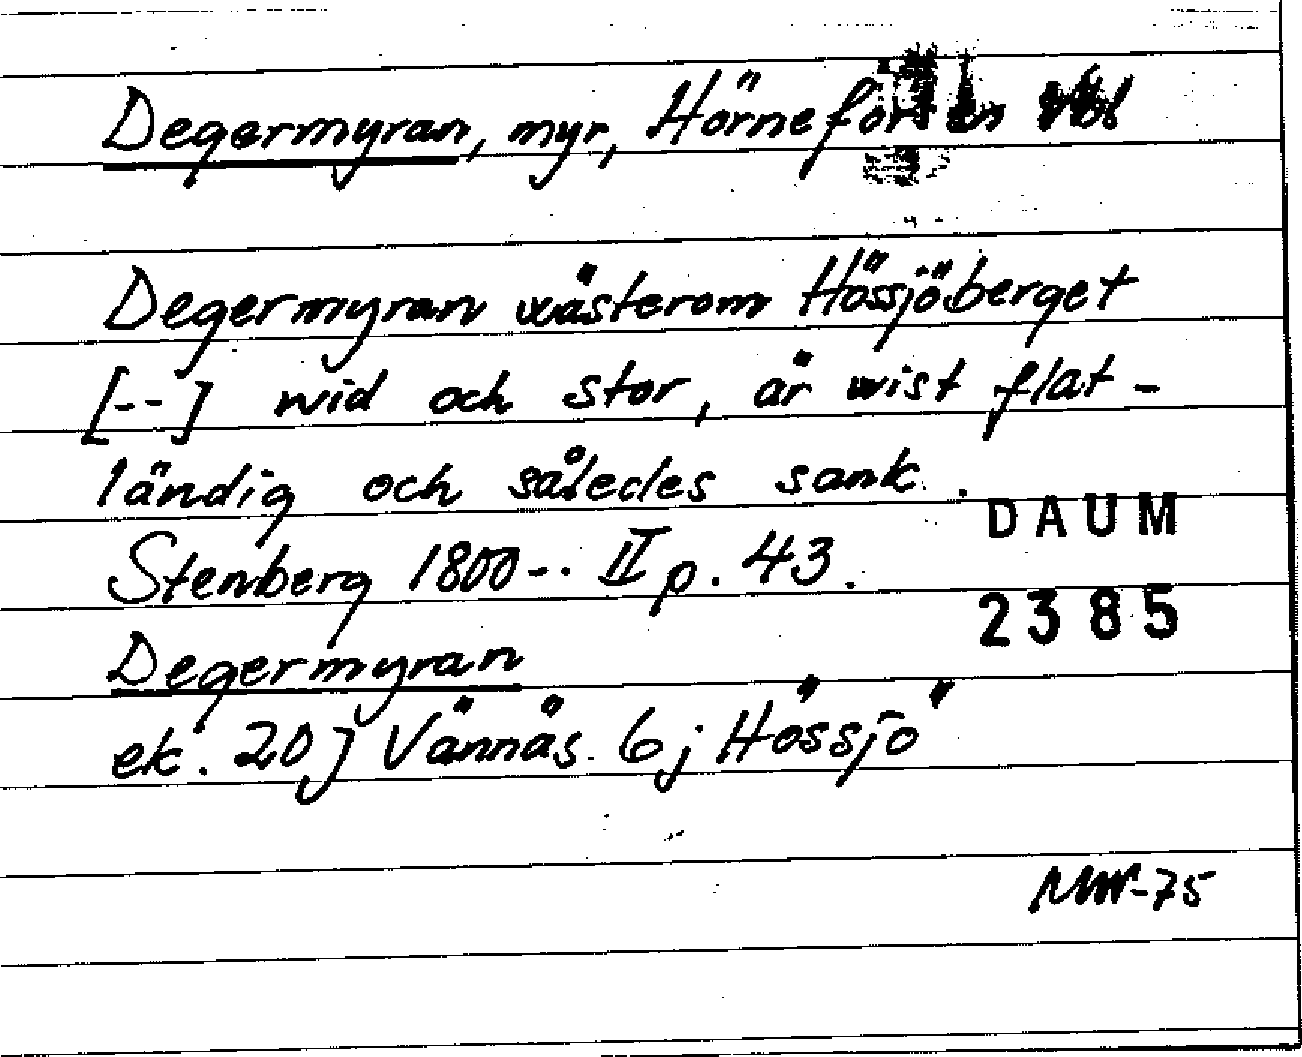 Degermyran, myr, Hörnefors sn Vbl
Degermyran wästerom Hössjöberget
[--] wid och stor, är wist flat-
ländig och således sank.
DAUM
Stenberg 1800-.. II p. 43.
2385
Degermyran
ek. 20J Vännäs 6j Hössjö
MW-75